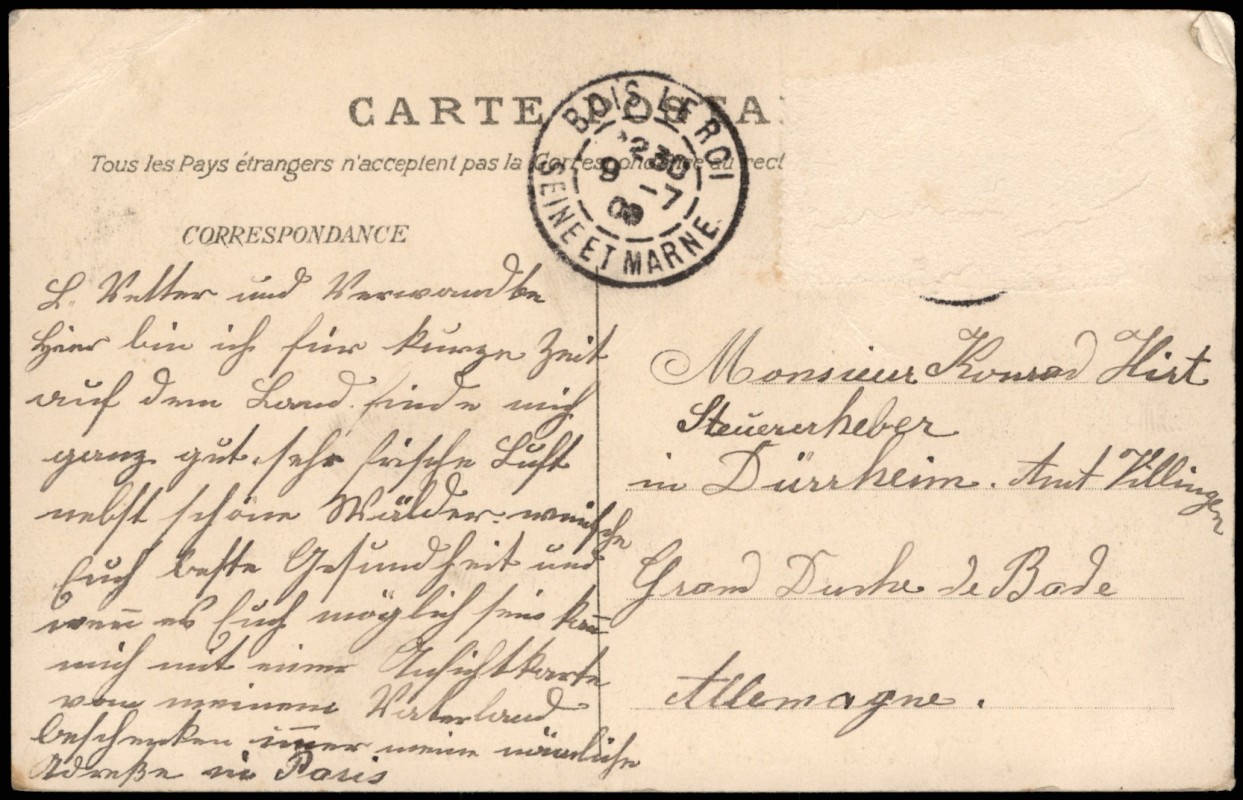 CARTE POSTA
Tous les Pays étrangers n'acceptent pas la Correspondance au rect
BOIS LE ROI
*230
9 -7
09
SEINE ET MARNE
CORRESPONDANCE
L. Vetter und Verwandte
Hier bin ich für kurze Zeit
auf dem Land. finde mich
ganz gut. sehr frische Luft
nebst schöne Wälder. wünsche
Euch beste Gesundheit und
weñ es Euch möglich sein kañ
mich mit einer Ansichtkarte
von meinem Vaterland
beschenken im̄er meine nämliche
Adreße in Paris
Monsieur Konrad Hirt
Steuererheber
in Dürrheim. Amt Villingen
Grand Duche de Bade
Allemagne.